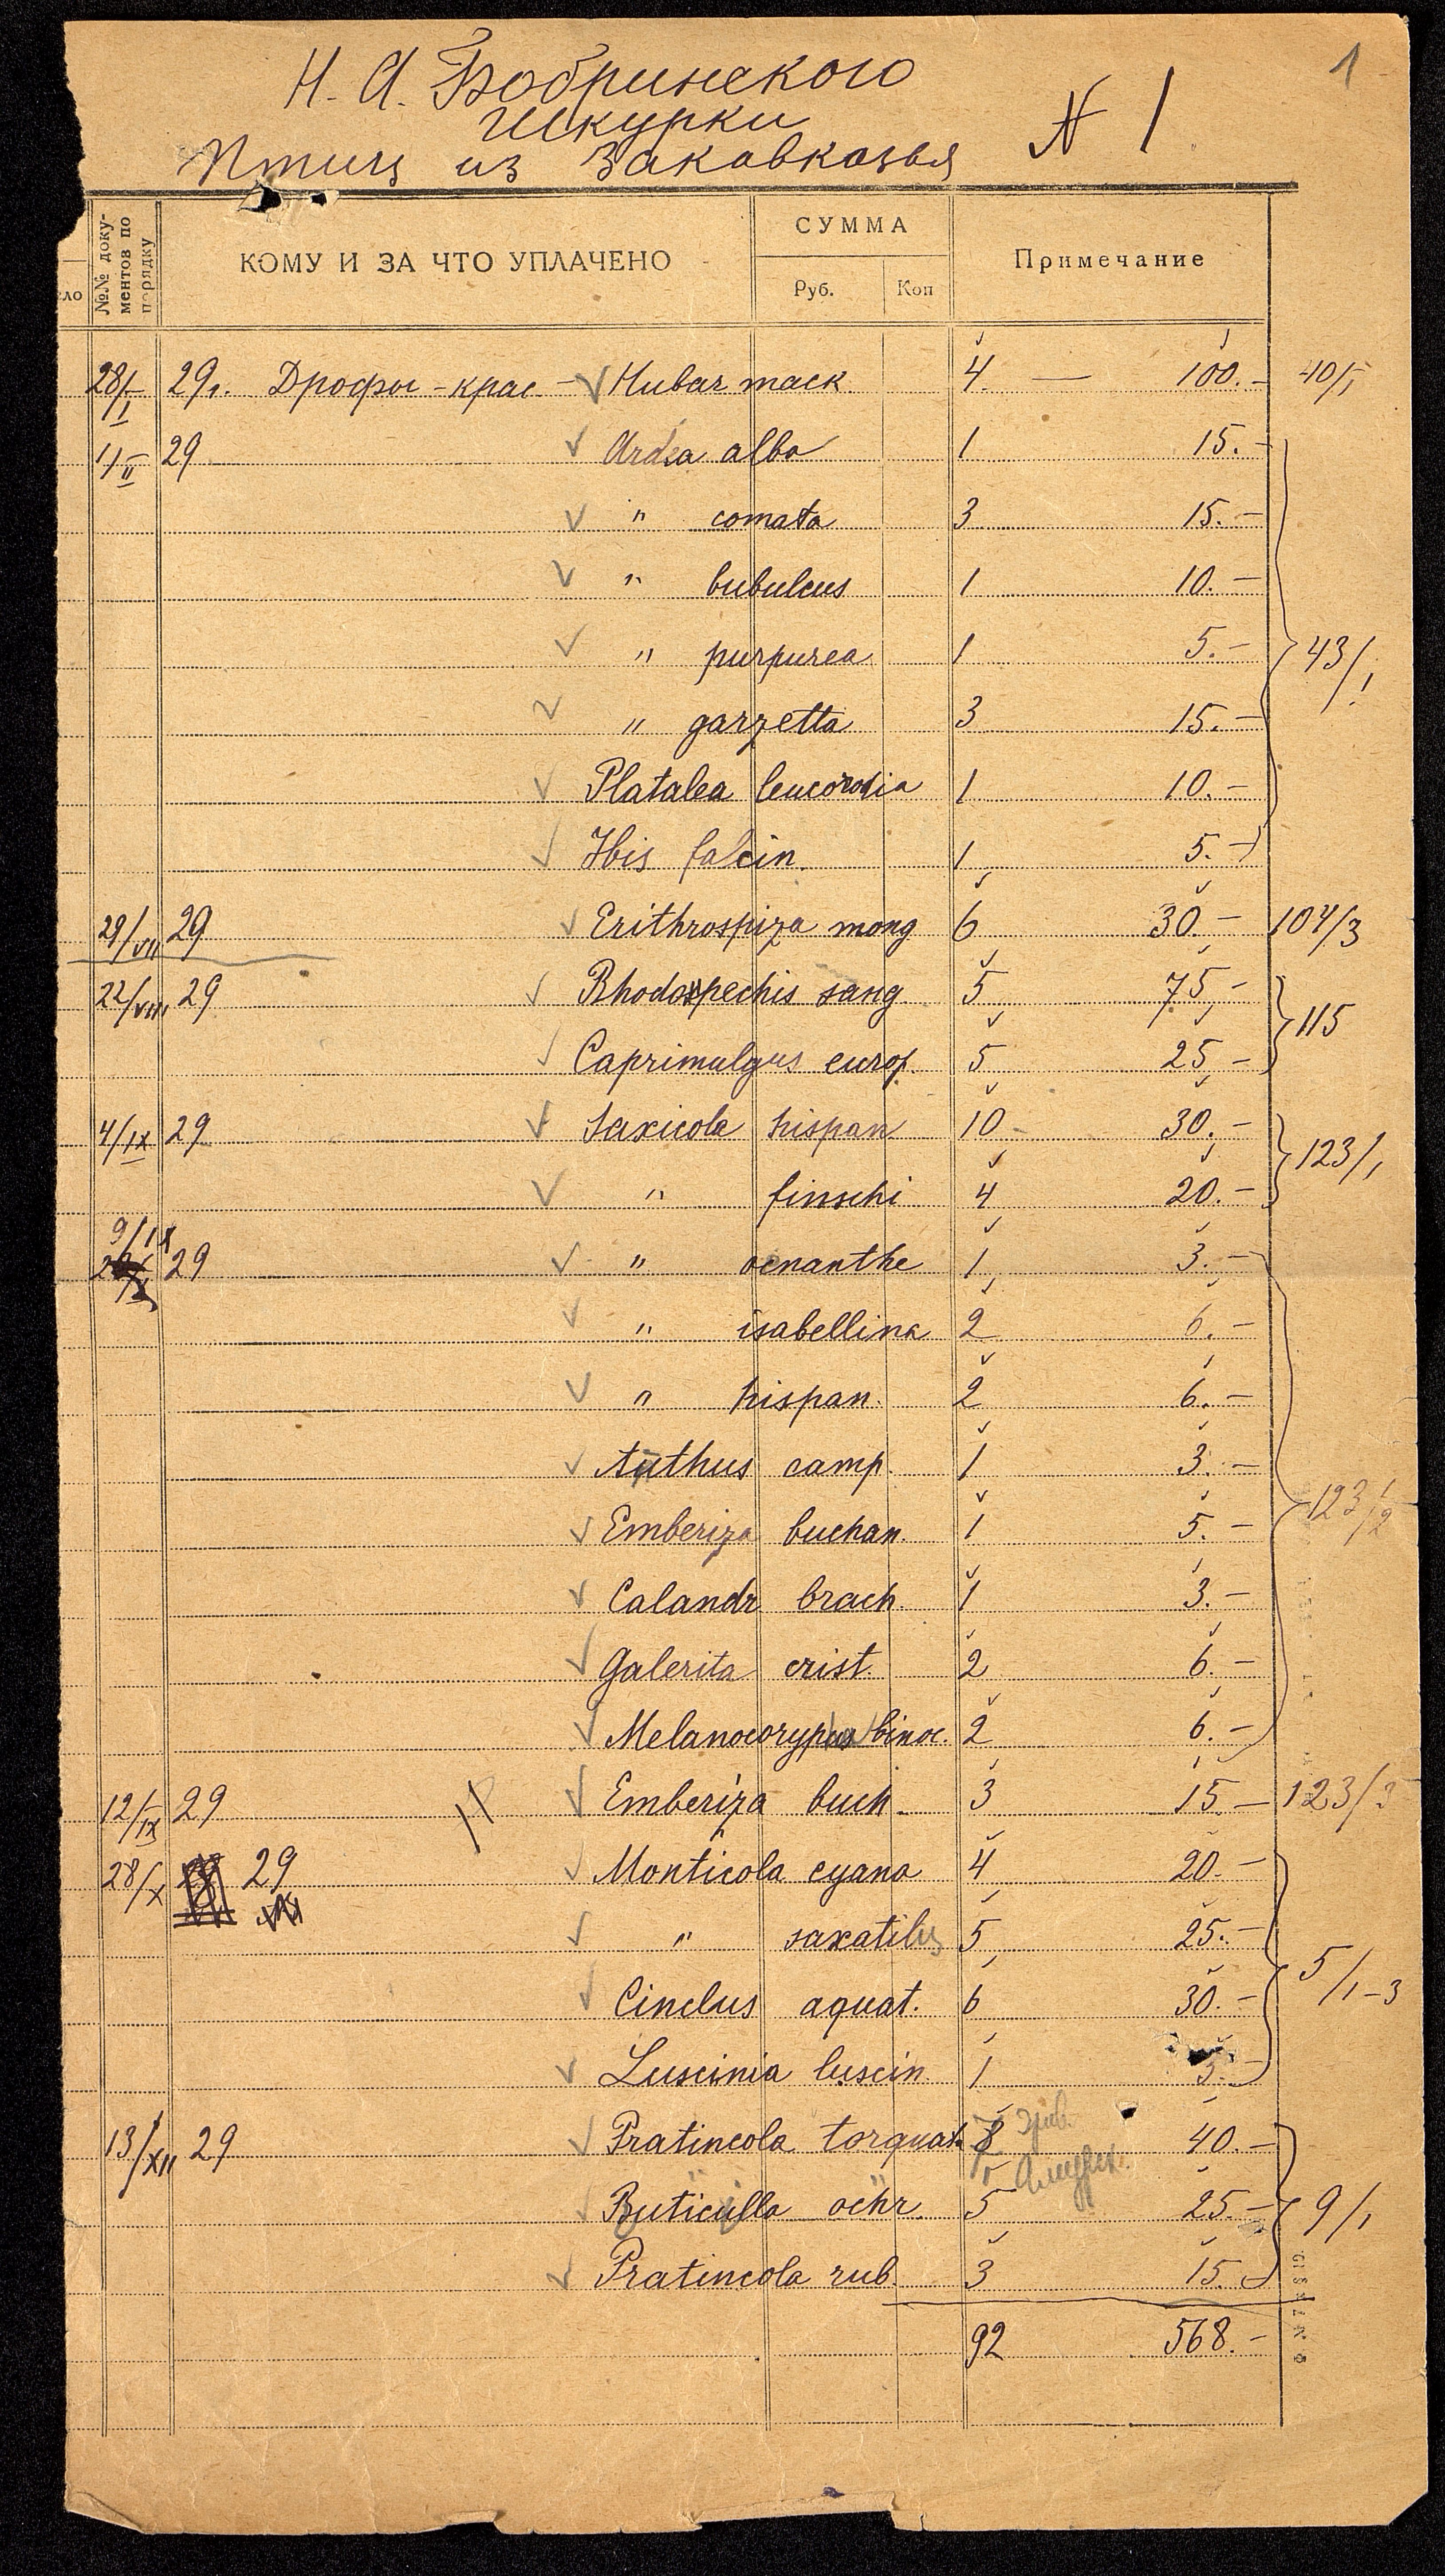 1
Н. А. Бобринского
шкурки
Птиц из Закавказья № 1
№№ доку-
ментов по
порядку
КОМУ И ЗА ЧТО УПЛАЧЕНО
СУММА
Руб. Коп
Примечание
28/I 29г. Дрофы-крас- Hubar mack. 4. — 100.– 40/1
1/II 29 Ardea alba 1 15.–
" comata 3 15.–
" bubulcus 1 10.–
" purpurea 1 5.– 43/1
" garzetta 3 15.–
Platalea leucorodia 1 10.–
Ibis falcin. 1 5.–
29/VII 29 Erithrospiza mong 6 30.– 104/3
22/VIII 29 Rhodospechis sang 5 75,–
Caprimulgus europ. 5 25,– 115
4/IX 29 Saxicola hispan 10 30.–
" finschi 4 20.– 123/1
9/IX
29 " oenanthe 1 3.–
" isabellina 2 6.–
" hispan. 2 6.–
Anthus camp. 1 3.–
Emberiza buchan. 1 5.– 123/2
Calandr. brach. 1 3.–
Galerita crist. 2 6.–
Melanocorypha bimac. 2 6.–
12/IX 29 Emberiza buch. 3 15.– 123/3
28/X 29 Monticola cyano 4 20.–
" saxatilis 5 25.–
Cinclus aquat. 6 30.– 5/1–3
Luscinia luscin. 1 5.–
13/XII 29 Pratincola torquat. 8 40.–
Ruticilla ochr. 5 25.– 9/1
Pratincola rub. 3 15.–
92 568.–